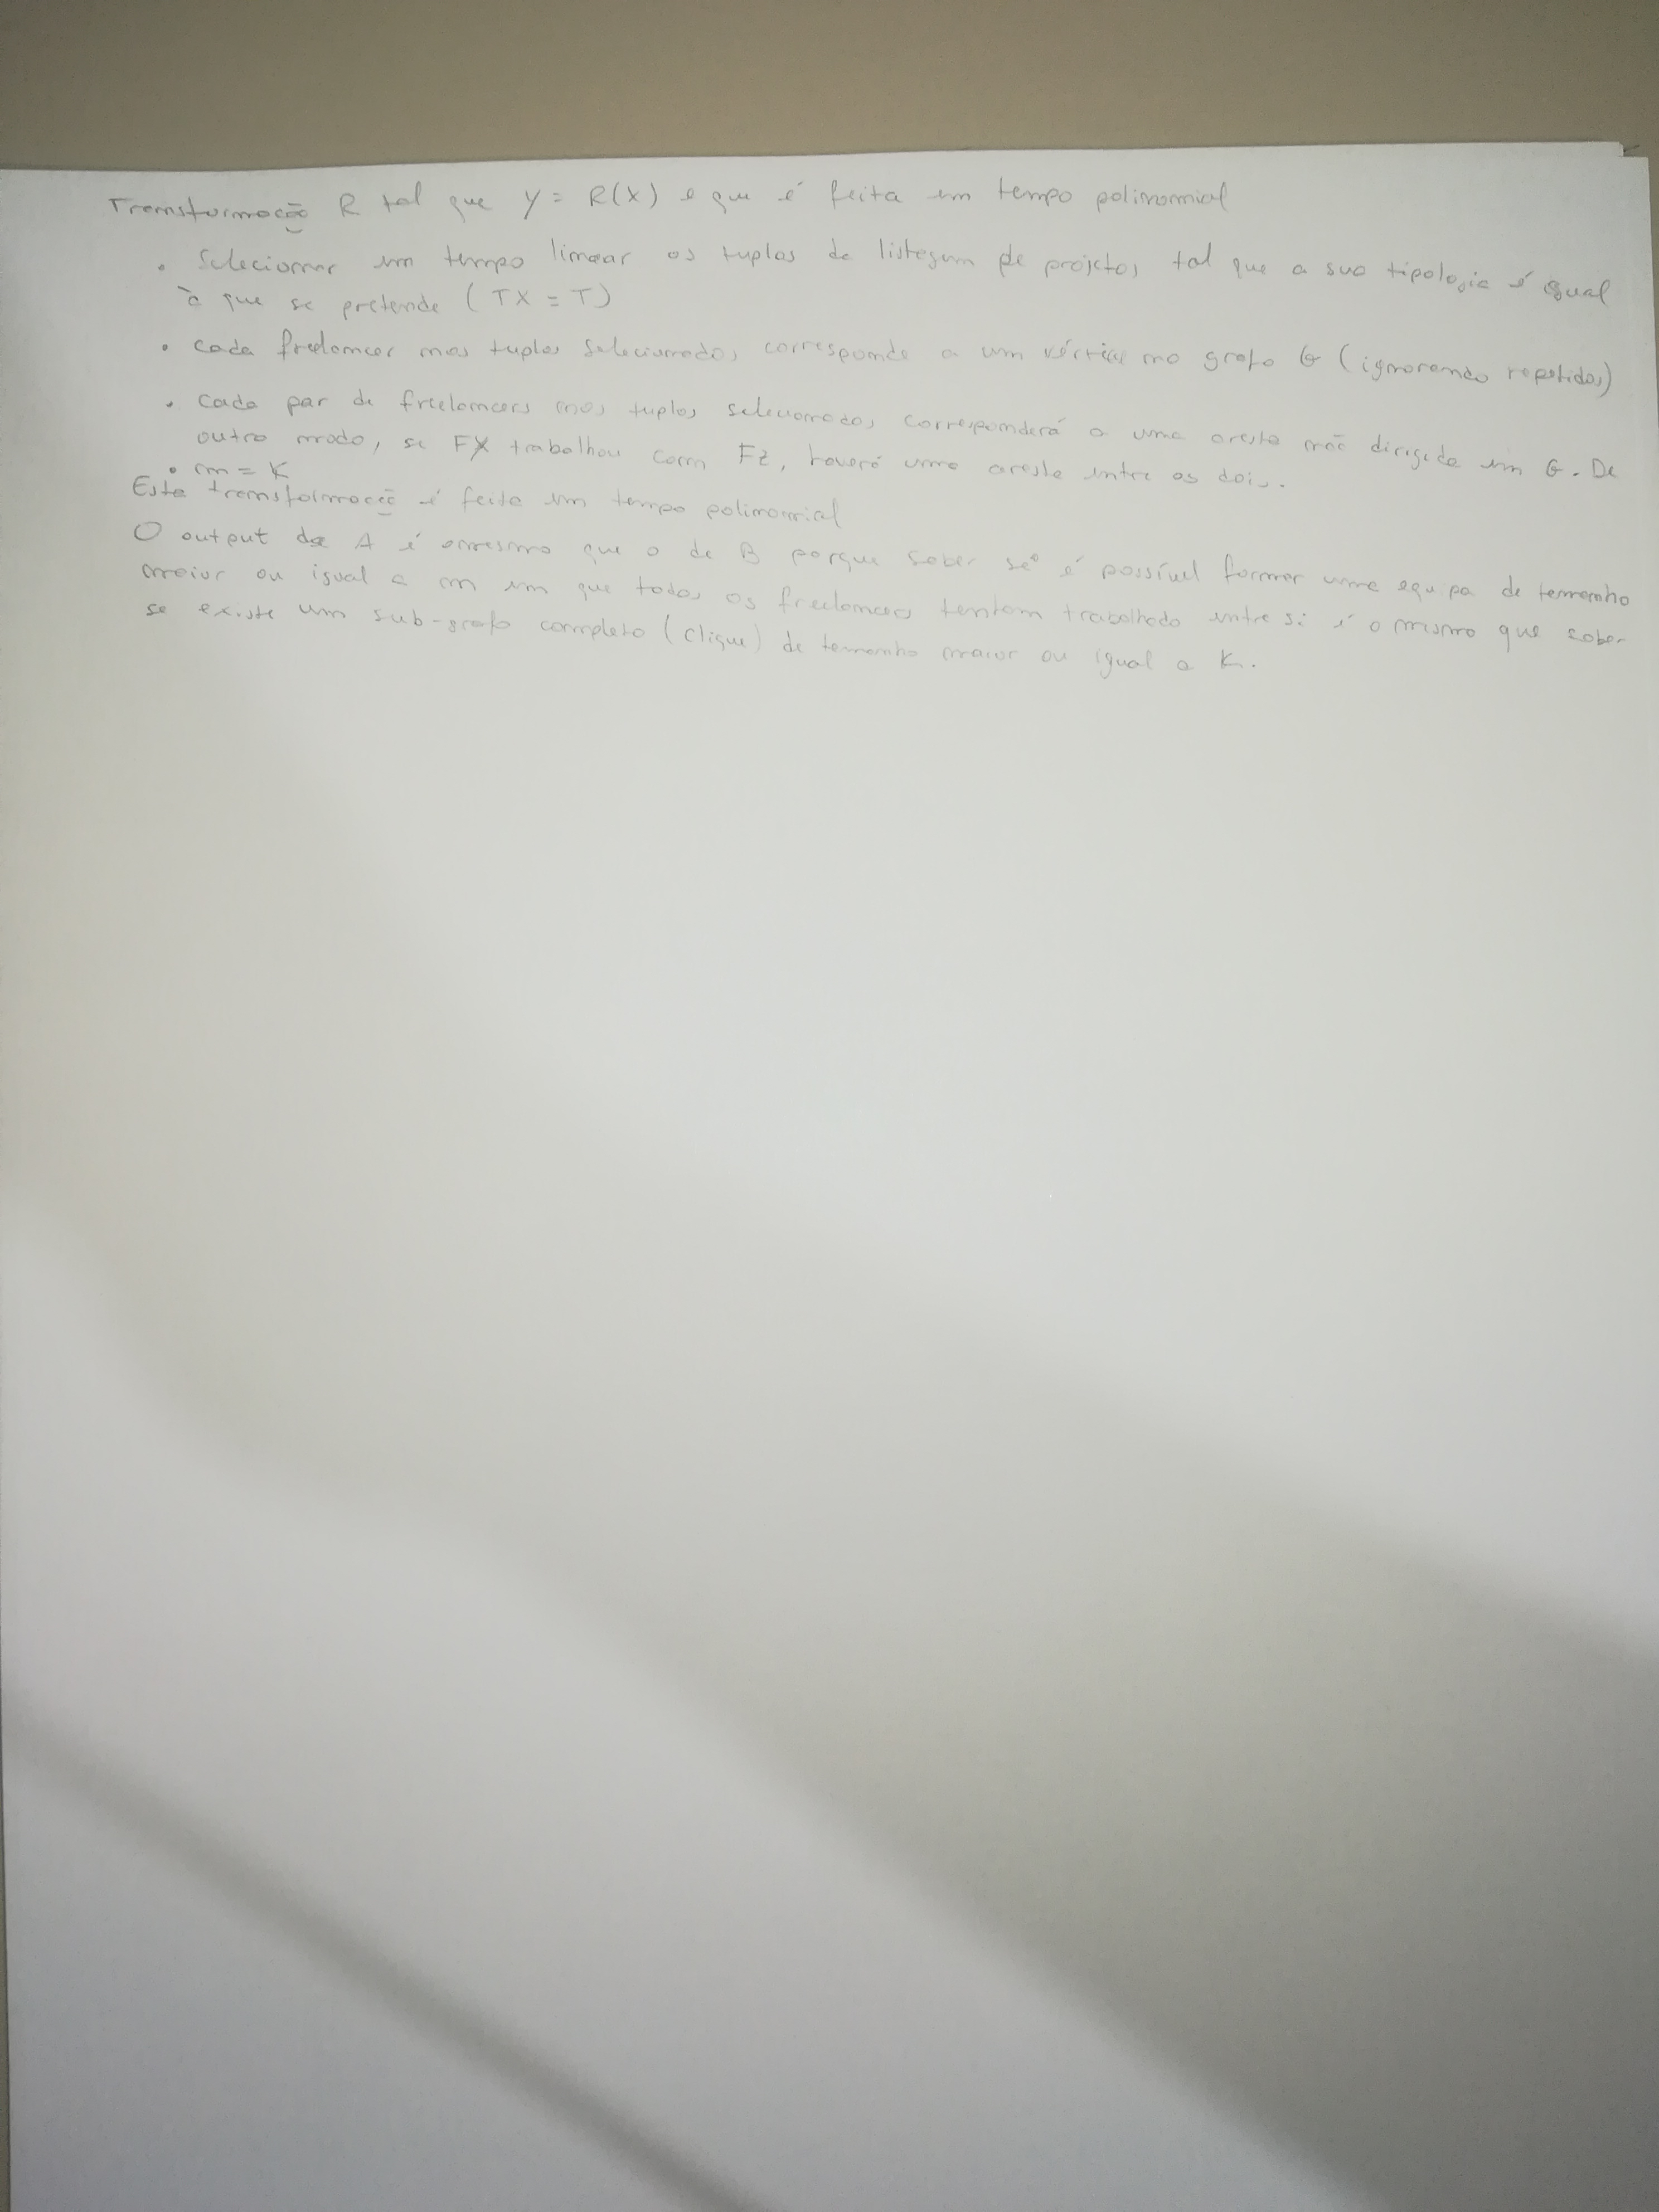 Transformação R tal que Y = R(X) e que é feita em tempo polinomial
• Selecionar em tempo linear os tuplos da listagem de projetos tal que a sua tipologia é igual
à que se pretende (TX = T)
• Cada freelancer nos tuplos selecionados corresponde a um vértice no grafo G (ignorando repetidos)
• Cada par de freelancers nos tuplos selecionados corresponderá a uma aresta não dirigida em G. De
outro modo, se FX trabalhou com FZ, haverá uma aresta entre os dois.
• m = K
Esta transformação é feita em tempo polinomial
O output de A é o mesmo que o de B porque saber se é possível formar uma equipa de tamanho
maior ou igual a m em que todos os freelancers tenham trabalhado entre si é o mesmo que saber
se existe um sub-grafo completo (clique) de tamanho maior ou igual a K.